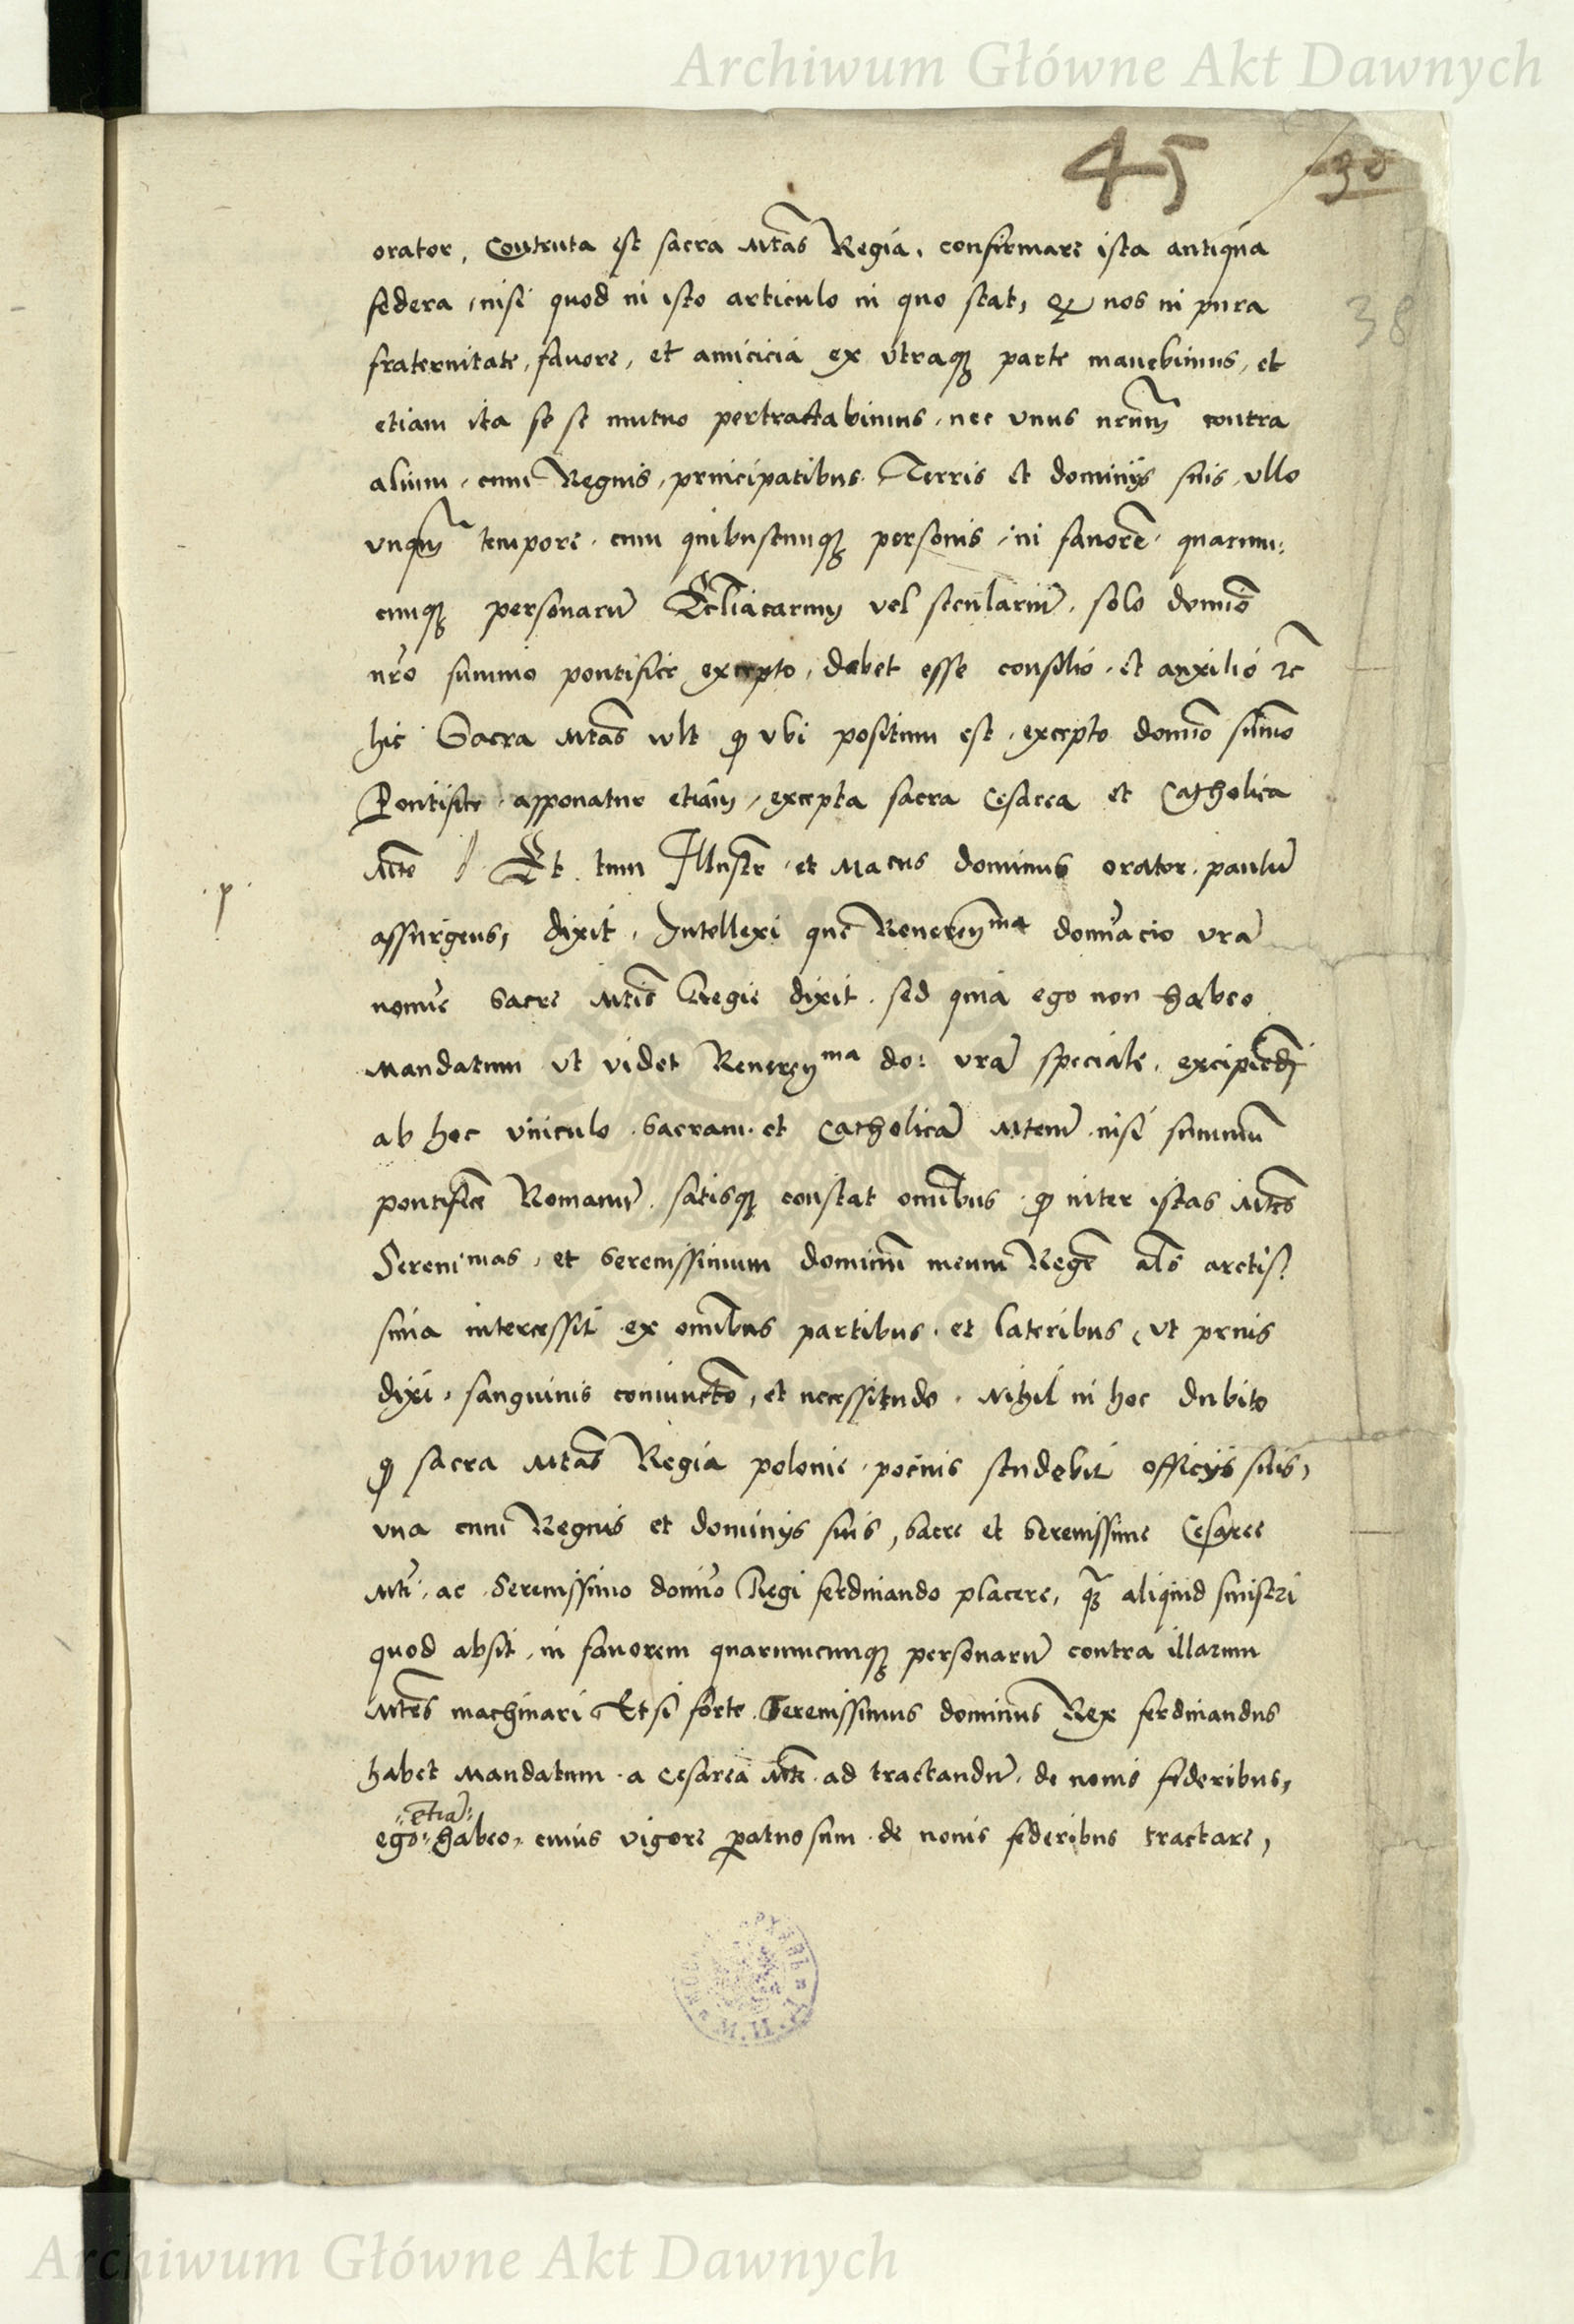 Archiwum Główne Akt Dawnych
45
38
orator, Contenta est sacra Mtas Regia, confirmare ista antiqua
federa, nisi quod in isto articulo in quo stat, nos in pura
fraternitate, favore, et amicicia ex utraque parte manebimus, et
etiam ita se se mutuo pertractabimus, nec unus nrum contra
alium, cum Regnis, principatibus, Terris et dominijs suis, ullo
unqm tempore, cum quibuscunque personis, in favore, quarum:
cunque personaru Ecliacarum vel seculariu, solo domio
nro summo pontifice excepto, debet esse consilio, et auxilio etc
hic Sacra Mtas wlt q ubi positum est, excepto domio sumo
Pontifice apponatur etiam, excepta sacra Cesarea et Catholica
Mte Et tum Illustr et Macus dominus orator, paulu
·p·
assurgens, dixit, Intellexi que Reverenma domacio vra
nomie Sacre Mtis Regie dixit, sed quia ego non habeo
Mandatum ut videt Reverenma do: vra speciale, excipiendi
ab hoc vinculo Sacram et Catholica Mtem nisi summu
pontifice Romanu, satisque constat omibus q inter istas Mtes
Serenimas, et Serenissimum dominu meum Rege als arctis?
sima intercessit ex omibus partibus, et lateribus, ut prius
dixi, sanguinis coniuncto, et necessitudo, Nihil in hoc dubito
q sacra Mtas Regia polonie, pocius studebit officijs suis,
una cum Regnis et dominijs suis, Sacre et Serenissime Cesaree
Mti, ac Serenissimo domio Regi ferdinando placere, q aliquid sinistri
quod absit, in favorem quarumcunque personaru contra illarum
Mtes machinari Et si forte Serenissimus dominus Rex ferdinandus
habet Mandatum a Cesarea Mte ad tractandu, de novis federibus,
etia
ego habeo, cuius vigore paratus sum de novis federibus tractare,
Archiwum Główne Akt Dawnych